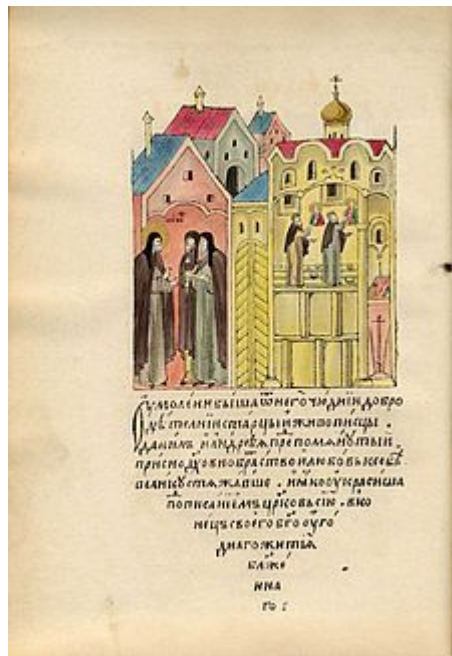 Оумолени быша ѿ него чюднїи добро
дѣтелнїи старцы и живописцы .
данилъ и андрѣй препомянутыи
присно дховно братство и любовь к себѣ
велику стяжавше . и яко украсиша
пописанїемъ црковь сїю . вко
нець своего бгооуго
днаго житїѧ
блже
нна
го :